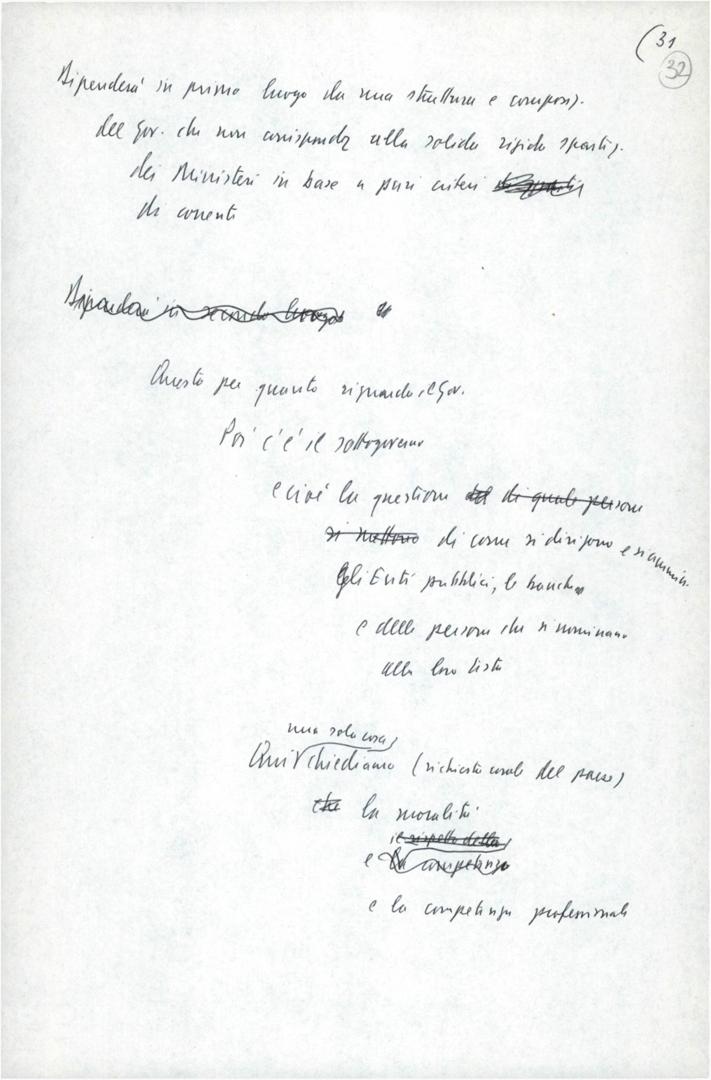 (31
32
Dipenderà in primo luogo da una struttura e composiz.
del Gov. che non corrisponda alla solida rigida spartiz.
dei Ministeri in base a puri criteri
di correnti
Dipenderà in secondo luogo
Questo per quanto riguarda il Gov.
Poi c'è il sottogoverno
e cioè la questione del di quale persone
si mettono di come si dirigono e si ammin.
gli Enti pubblici, le banche
e delle persone che si nominano
alla loro testa
una sola cosa
Qui chiediamo (richiesta corale del paese)
che la moralità
il rispetto della
e la competenza
e la competenza professionale